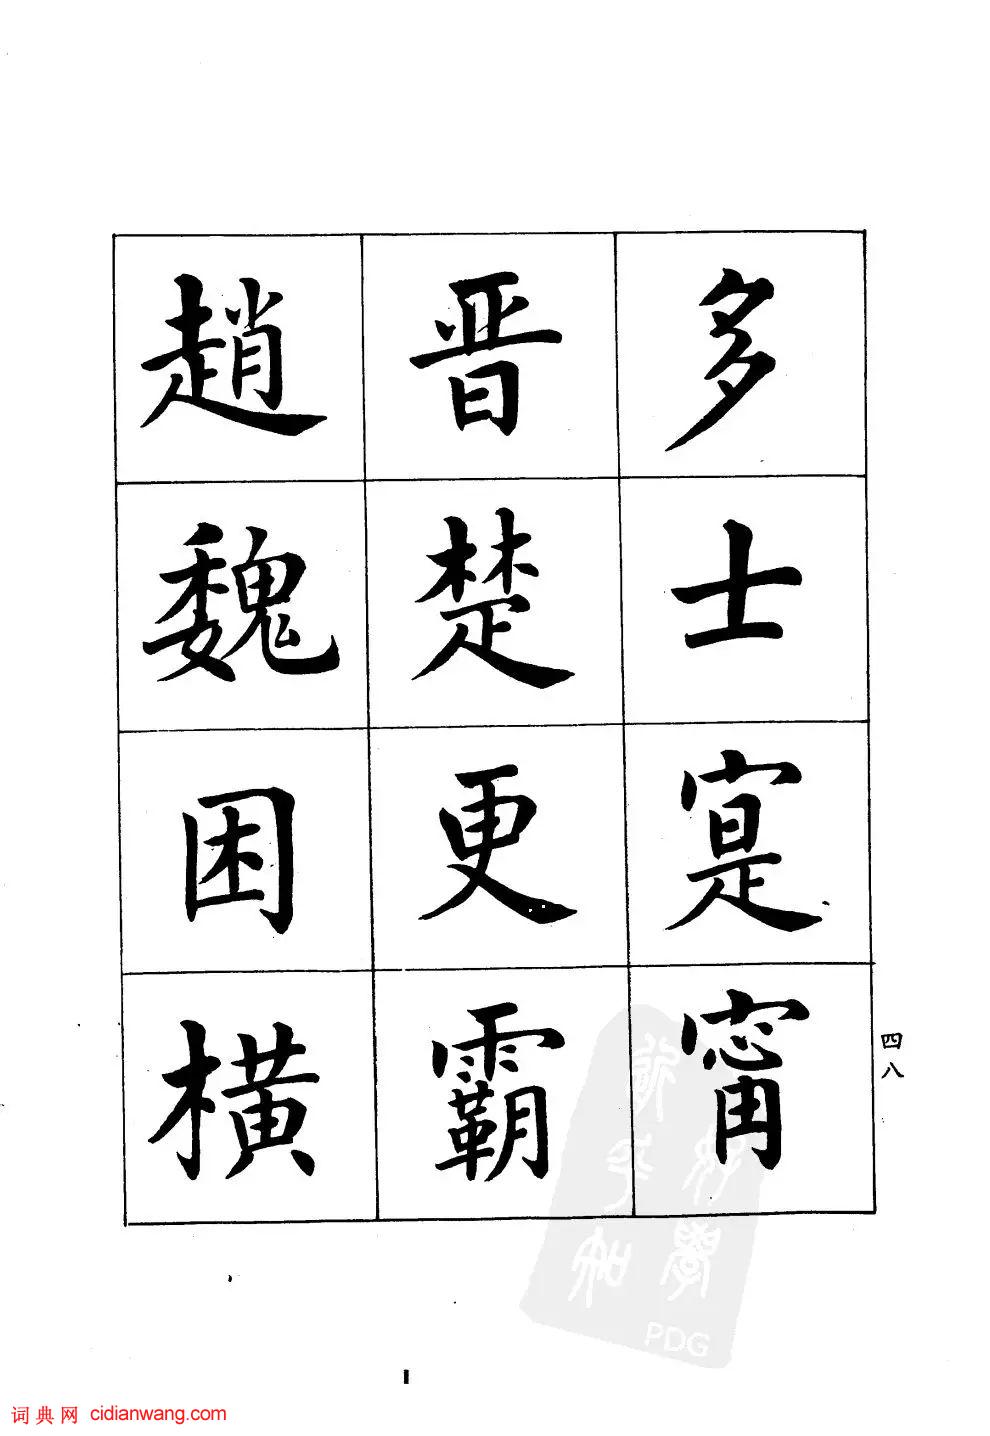 多士寔甯
晋楚更霸
趙魏困橫
四八
PDG
词典网 cidianwang.com